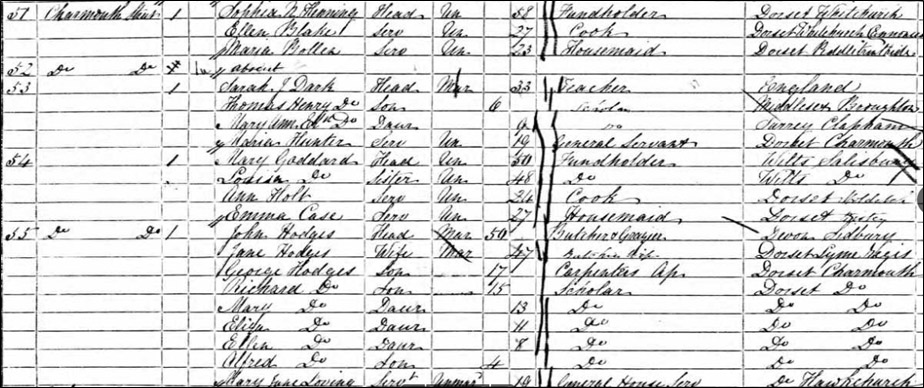 51 Charmouth 1 Sophia N Henning Head Un 58 Fundholder Dorset Whitchurch
Ellen Blake Serv Un 27 Cook Dorset Whitchurch
Maria Serv Un 23 Housemaid Dorset
52 Do Do absent
53 1 Sarah J Dark Head Mar 33 Teacher England
Thomas Henry Do Son 6 Scholar Middlesex
Mary Ann Do Daur Do Surrey Clapham
Maria Hunter Serv Un 19 General Servant Dorset Charmouth
54 1 Mary Goddard Head Un 50 Fundholder Wilts Salisbury
Louisa Do Sister Un 48 Do Wilts Do
Ann Holt Serv Un Cook Dorset
Emma Case Serv Un 27 Housemaid Dorset
55 Do Do 1 John Hodges Head Mar 50 Butcher & Grazier Devon Sidbury
Jane Hodges Wife Mar 47 Dorset Lyme Regis
George Hodges Son 17 Carpenters Ap Dorset Charmouth
Richard Do Son 15 Scholar Dorset Do
Mary Do Daur 13 Do Do Do
Eliza Do Daur 11 Do Do Do
Ellen Do Daur 8 Do Do Do
Alfred Do Son 4 Do Do Do
Mary Jane Loving Servt Unmard 19 General House Serv Do Hawkchurch